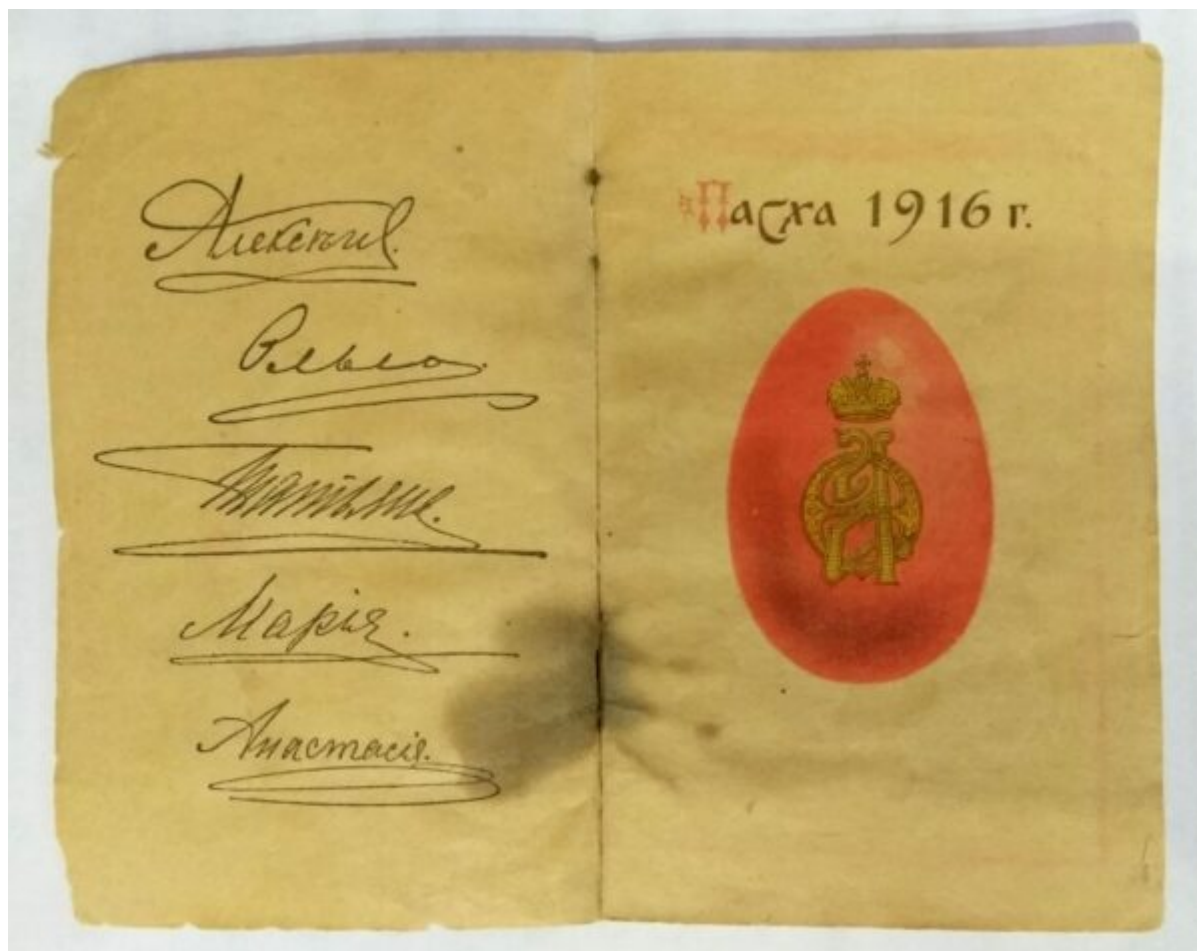 Алексѣй.
Ольга.
Татьяна.
Марія.
Анастасія.
Пасха 1916 г.